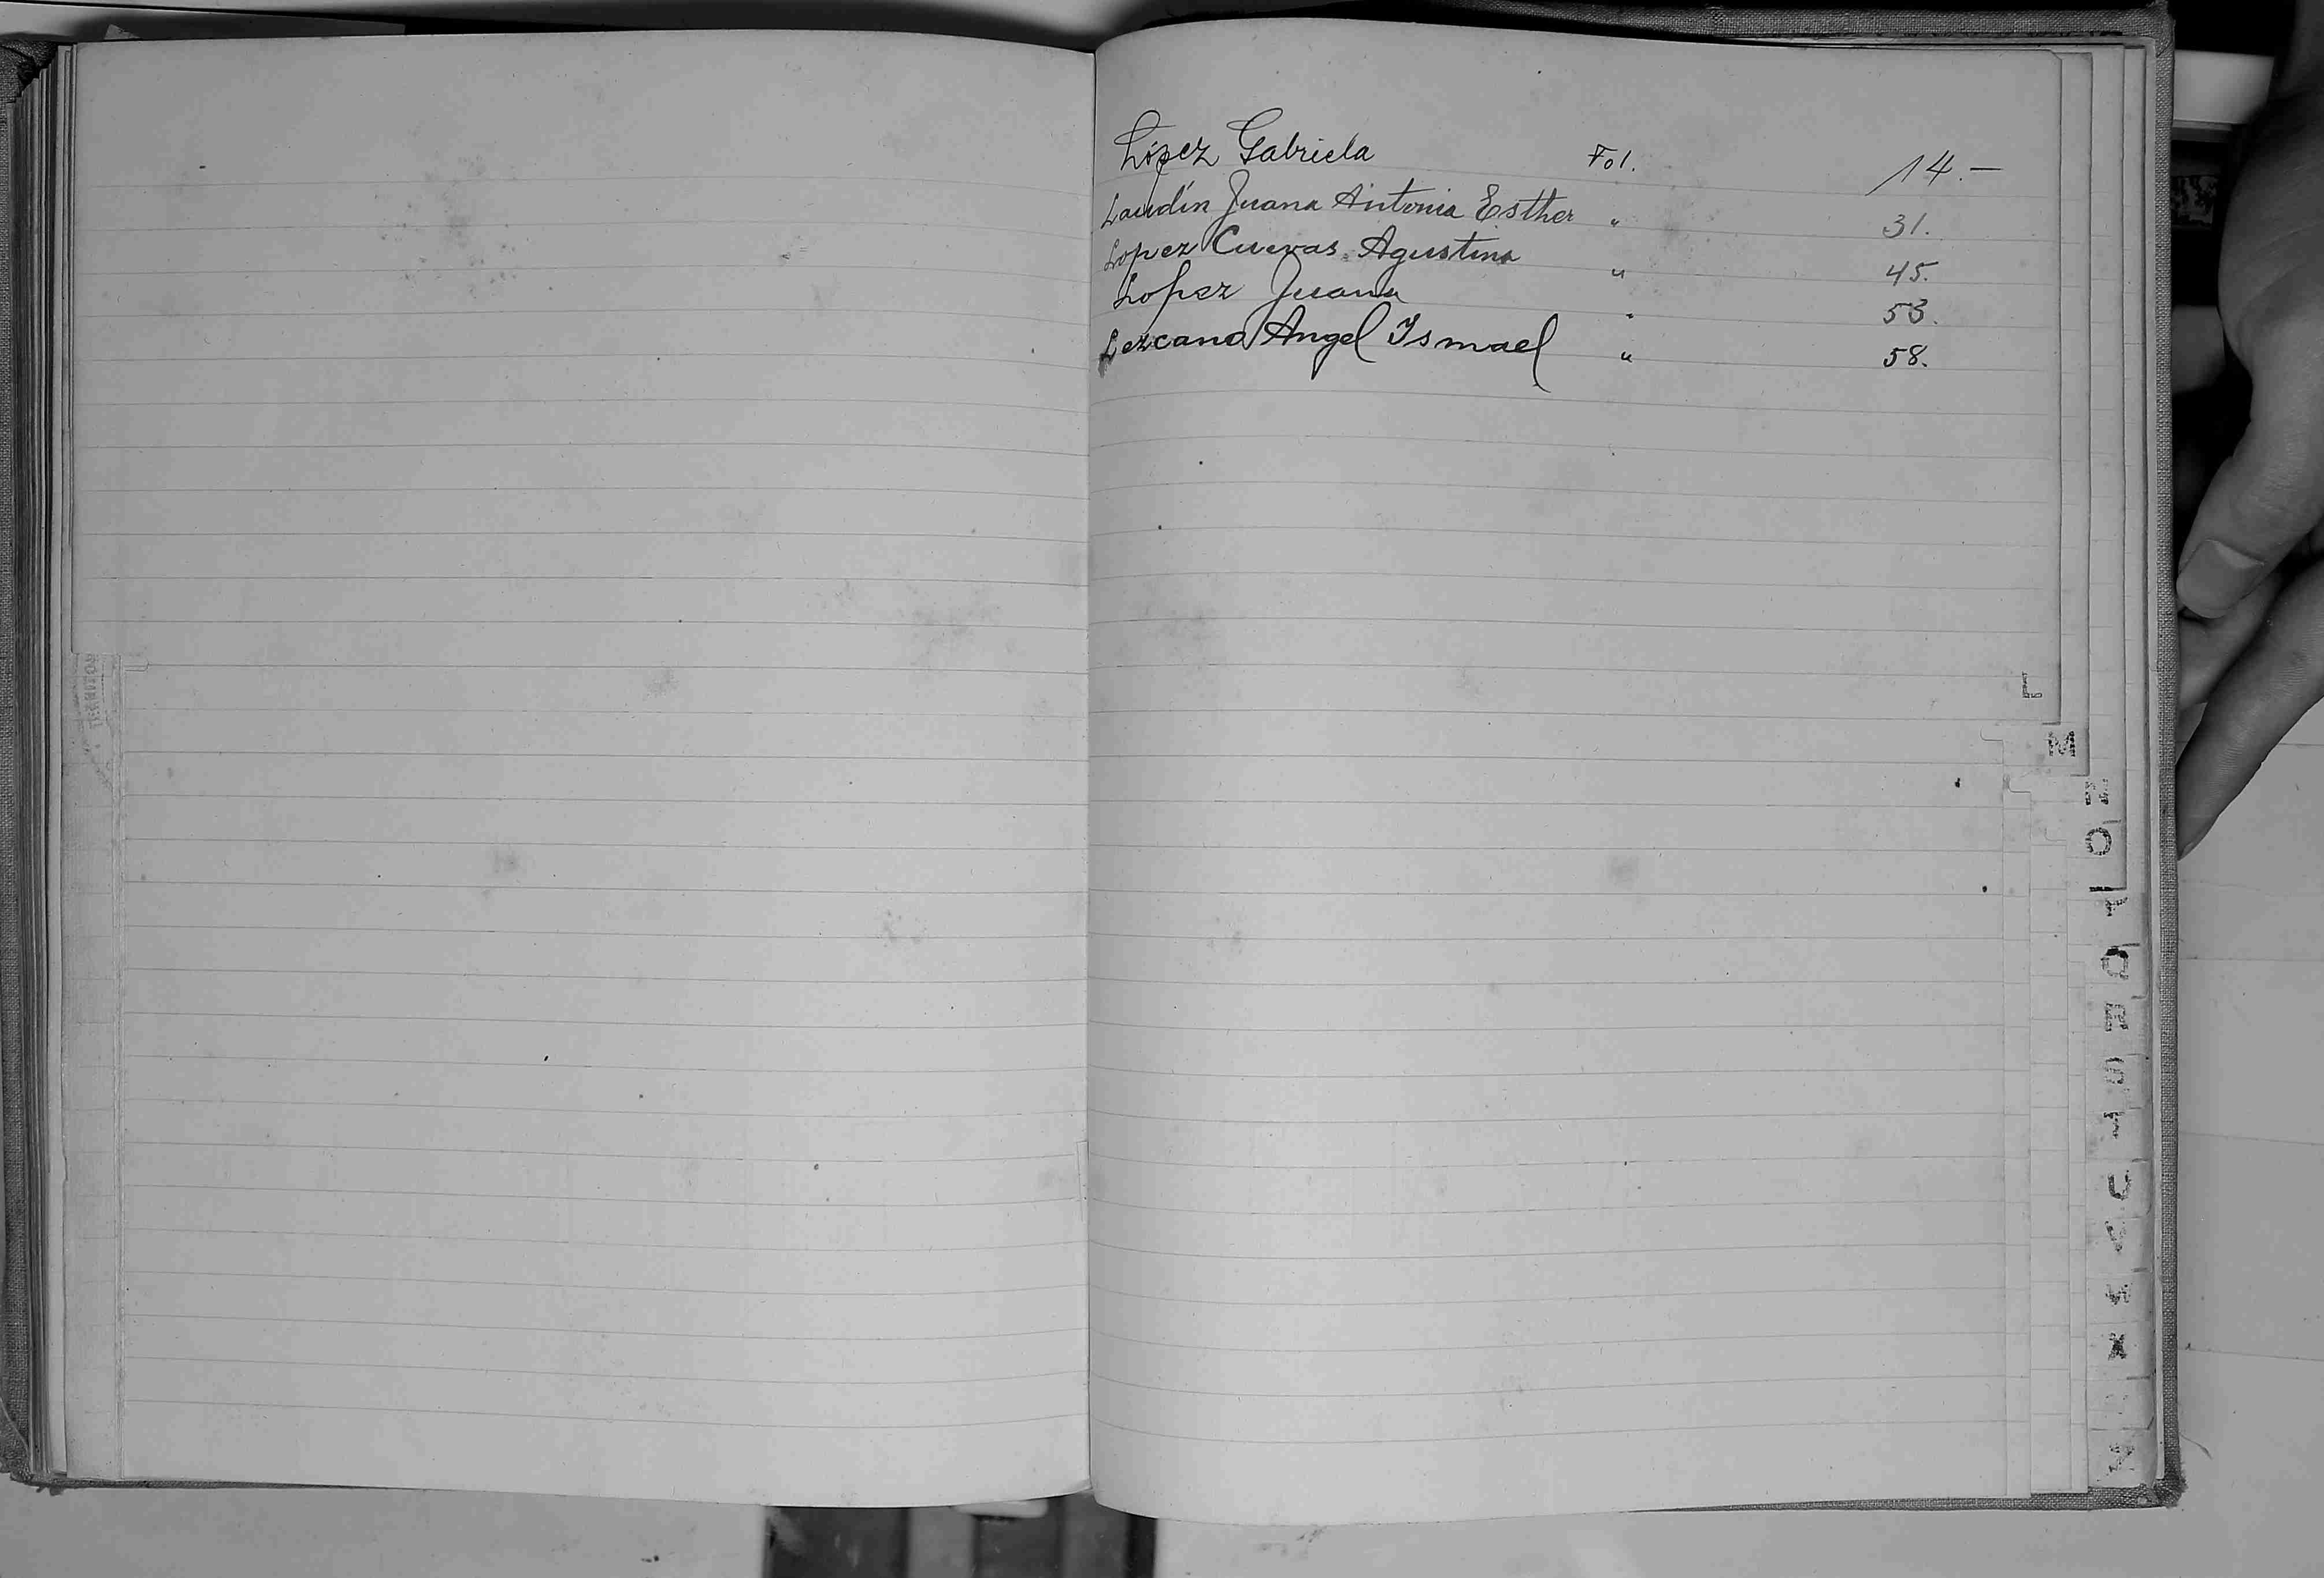 López Gabriela Fol. 14.-
Landín Juana Antonia Esther " 31.
Lopez Cuevas Agustina " 45.
Lopez Juana " 53.
Lezcano Angel Ismael " 58.
L
M
N
O
P
Q
R
S
T
U
V
W
X
Z